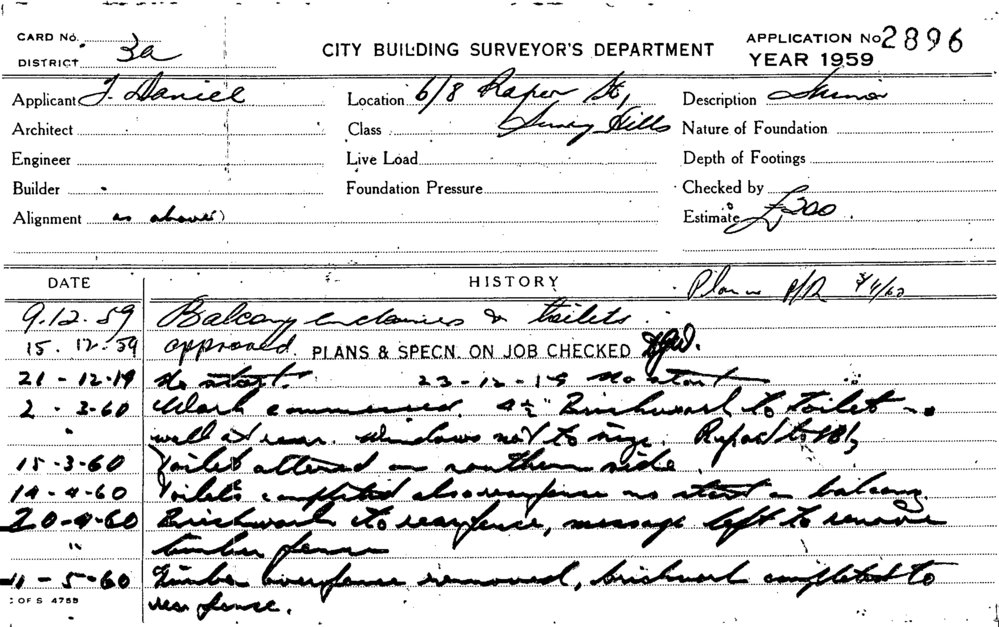 CARD No.
DISTRICT 3a
CITY BUILDING SURVEYOR'S DEPARTMENT
APPLICATION No 2896
YEAR 1959
Applicant J. Daniel
Location 6/8 Raper St,
Description Minor
Architect
Class Surry Hills
Nature of Foundation
Engineer
Live Load
Depth of Footings
Builder
Foundation Pressure
Checked by
Alignment as above)
Estimate £300
DATE HISTORY Plan P/R
9.12.59 Balcony & toilets.
15.12.59 approved. PLANS & SPECN. ON JOB CHECKED
21-12-19 No start. 23-12-19 No start
2-3-60 Work commenced. 4½" Brickwork to toilet
" wall at rear. Windows not to size.
15-3-60 Toilet altered on southern side.
14-4-60 Toilets completed also no start on balcony.
20-4-60 Brickwork to rear fence, message left to remove
" timber fence
11-5-60 Timber fence removed, brickwork completed to
rear fence.
C OF S 4755